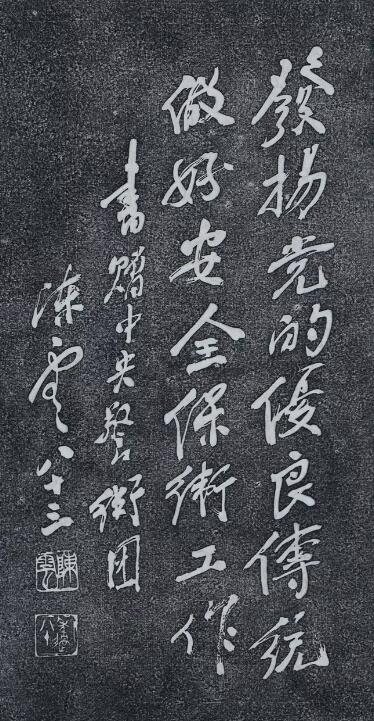 發揚党的優良傳統
做好安全保衛工作
書贈中央警衛团
陳雲八十三
陳雲